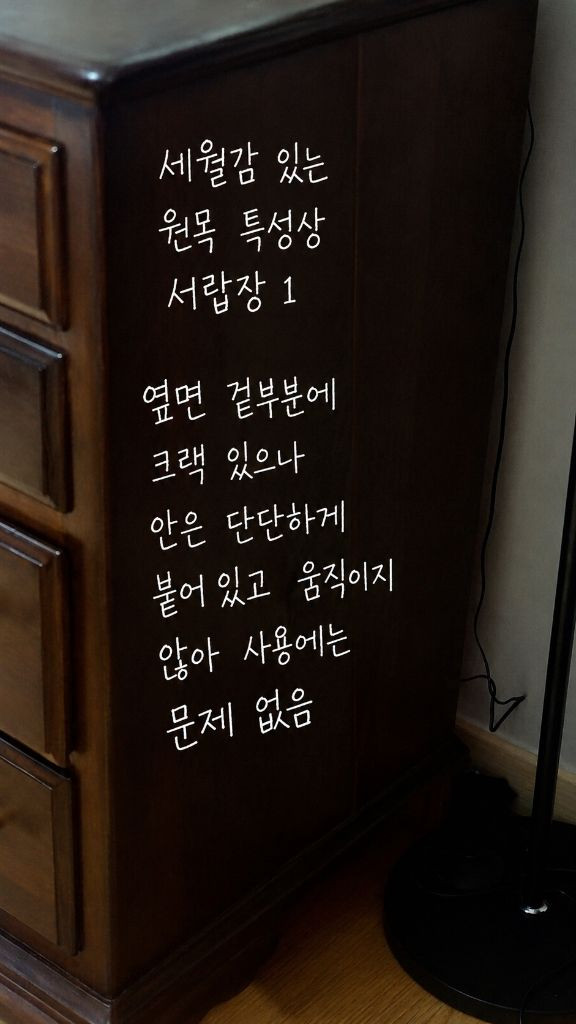 세월감 있는
원목 특성상
서랍장 1
옆면 겉부분에
크랙 있으나
안은 단단하게
붙어 있고 움직이지
않아 사용에는
문제 없음